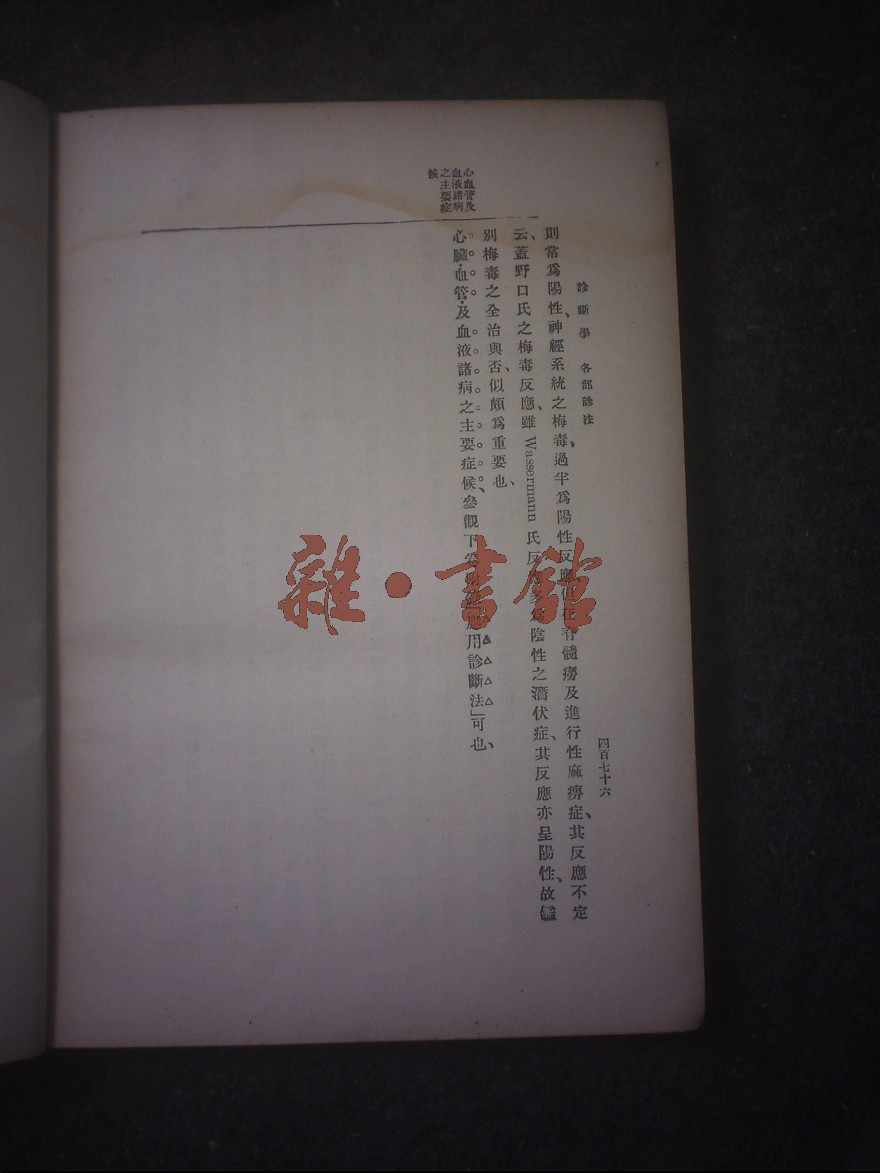 診斷學 各部診法
四百七十六
則常爲陽性、神經系統之梅毒、過半爲陽性反應、在脊髓癆及進行性麻痹症、其反應不定
云、蓋野口氏之梅毒反應、雖 Wassermann 氏反應多爲陰性之潛伏症、其反應亦呈陽性、故鑑
別梅毒之全治與否、似頗爲重要也、
心臟・血管・及血液諸病之主要症候、參觀下 應用診斷法」可也、
心血管及
血液諸病
之主要症
候
雜・書館